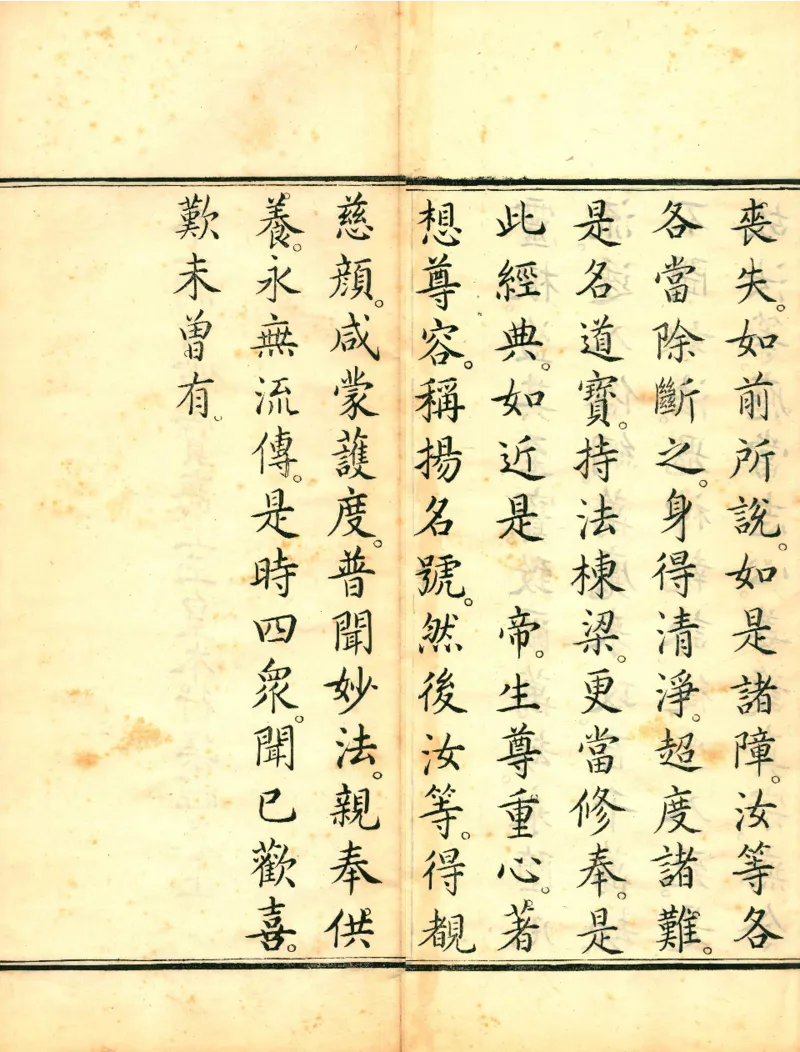 喪失。如前所說。如是諸障。汝等各
各當除斷之。身得清淨。超度諸難。
是名道寶。持法棟梁。更當修奉。是
此經典。如近是　帝。生尊重心。著
想尊容。稱揚名號。然後汝等。得覩
慈顏。咸蒙護度。普聞妙法。親奉供
養。永無流傳。是時四衆。聞已歡喜。
歎未曾有。